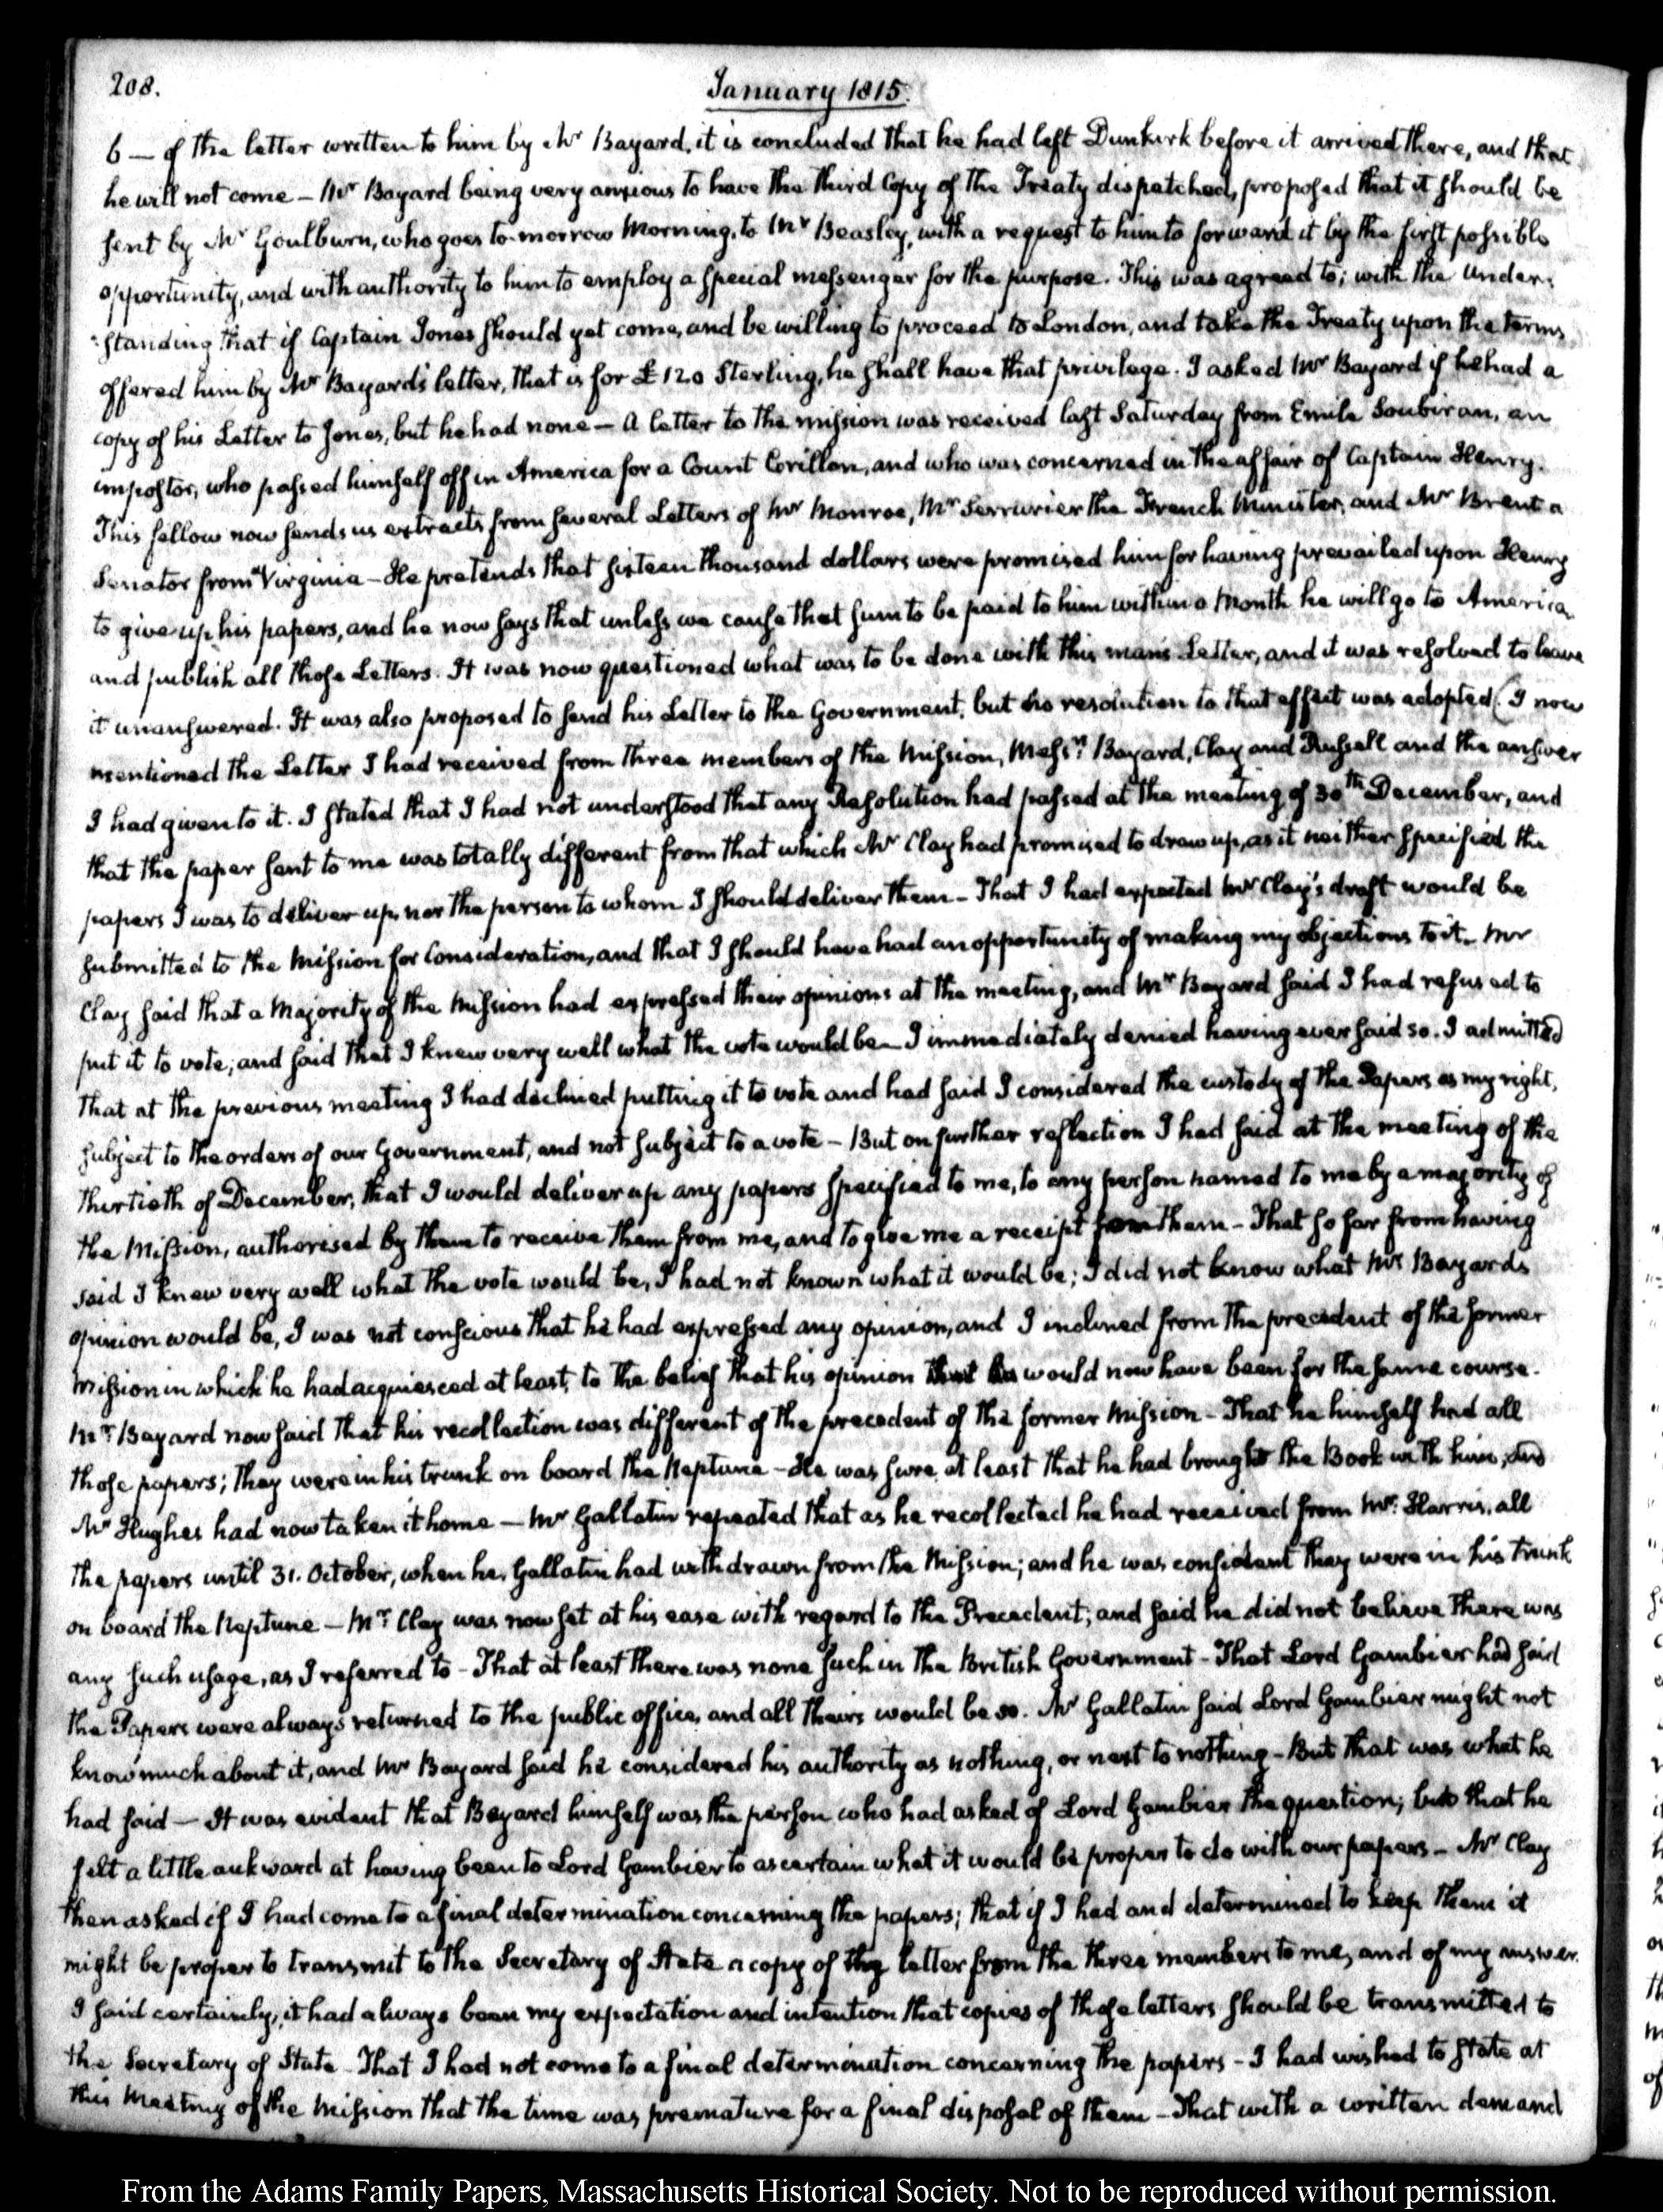 208.
January 1815.
6 — of the letter written to him by Mr Bayard, it is concluded that he had left Dunkirk before it arrived there, and that
he will not come — Mr Bayard being very anxious to have the third Copy of the Treaty dispatched, proposed that it should be
sent by Mr Goulburn, who goes to-morrow Morning, to Mr Beasley, with a request to him to forward it by the first possible
opportunity, and with authority to him to employ a special messenger for the purpose. This was agreed to; with the under-
-standing that if Captain Jones should yet come, and be willing to proceed to London, and take the Treaty upon the terms,
offered him by Mr Bayard's letter, that is for £120 Sterling, he shall have that privilege. I asked Mr Bayard if he had a
copy of his Letter to Jones, but he had none — A letter to the mission was received last Saturday from Emile Soubiran, an
impostor, who passed himself off in America for a Count Crillon, and who was concerned in the affair of Captain Henry.
This fellow now sends us extracts from several Letters of Mr Monroe, Mr Serrurier the French Minister, and Mr Brent a
Senator from Virginia — He pretends that sixteen thousand dollars were promised him for having prevailed upon Henry
to give up his papers, and he now says that unless we cause that sum to be paid to him within a Month he will go to America
and publish all those Letters. It was now questioned what was to be done with this man's Letter, and it was resolved to leave
it unanswered. It was also proposed to send his Letter to the Government, but no resolution to that effect was adopted (I now
mentioned the Letter I had received from three members of the Mission, Messrs Bayard, Clay and Russell and the answer
I had given to it. I stated that I had not understood that any Resolution had passed at the meeting of 30th December, and
that the paper sent to me was totally different from that which Mr Clay had promised to draw up, as it neither specified the
papers I was to deliver up, nor the person to whom I should deliver them — That I had expected Mr Clay's draft would be
submitted to the Mission for Consideration, and that I should have had an opportunity of making my objections to it — Mr
Clay said that a Majority of the Mission had expressed their opinions at the meeting, and Mr Bayard said I had refused to
put it to vote; and said that I knew very well what the vote would be — I immediately denied having ever said so. I admitted
that at the previous meeting I had declined putting it to vote and had said I considered the custody of the Papers as my right,
subject to the orders of our Government, and not subject to a vote — But on further reflection I had said at the meeting of the
thirtieth of December, that I would deliver up any papers specified to me, to any person named to me by a majority of
the Mission, authorised by them to receive them from me, and to give me a receipt for them — That so far from having
said I knew very well what the vote would be, I had not known what it would be; I did not know what Mr Bayards
opinion would be, I was not conscious that he had expressed any opinion, and I inclined from the precedent of the former
mission in which he had acquiesced at least, to the belief that his opinion would now have been for the same course.
Mr Bayard now said that his recollection was different of the precedent of the former Mission — That he himself had all
those papers; they were in his trunk on board the Neptune — He was sure at least that he had brought the Book with him, and
Mr Hughes had now taken it home — Mr Gallatin repeated that as he recollected he had received from Mr Harris, all
the papers until 31. October, when he, Gallatin had withdrawn from the Mission; and he was confident they were in his trunk
on board the Neptune — Mr Clay was now set at his ease with regard to the Precedent; and said he did not believe there was
any such usage, as I referred to — That at least there was none such in the British Government — That Lord Gambier had said
the Papers were always returned to the public office, and all theirs would be so. Mr Gallatin said Lord Gambier might not
know much about it, and Mr Bayard said he considered his authority as nothing, or next to nothing — But that was what he
had said — It was evident that Bayard himself was the person who had asked of Lord Gambier the question; but that he
felt a little aukward at having been to Lord Gambier to ascertain what it would be proper to do with our papers — Mr Clay
then asked if I had come to a final determination concerning the papers; that if I had and determined to keep them it
might be proper to transmit to the Secretary of State a copy of the letter from the three members to me, and of my answer.
I said certainly, it had always been my expectation and intention that copies of those letters should be transmitted to
the Secretary of State — That I had not come to a final determination concerning the papers — I had wished to state at
this Meeting of the Mission that the time was premature for a final disposal of them — That with a written demand
From the Adams Family Papers, Massachusetts Historical Society. Not to be reproduced without permission.